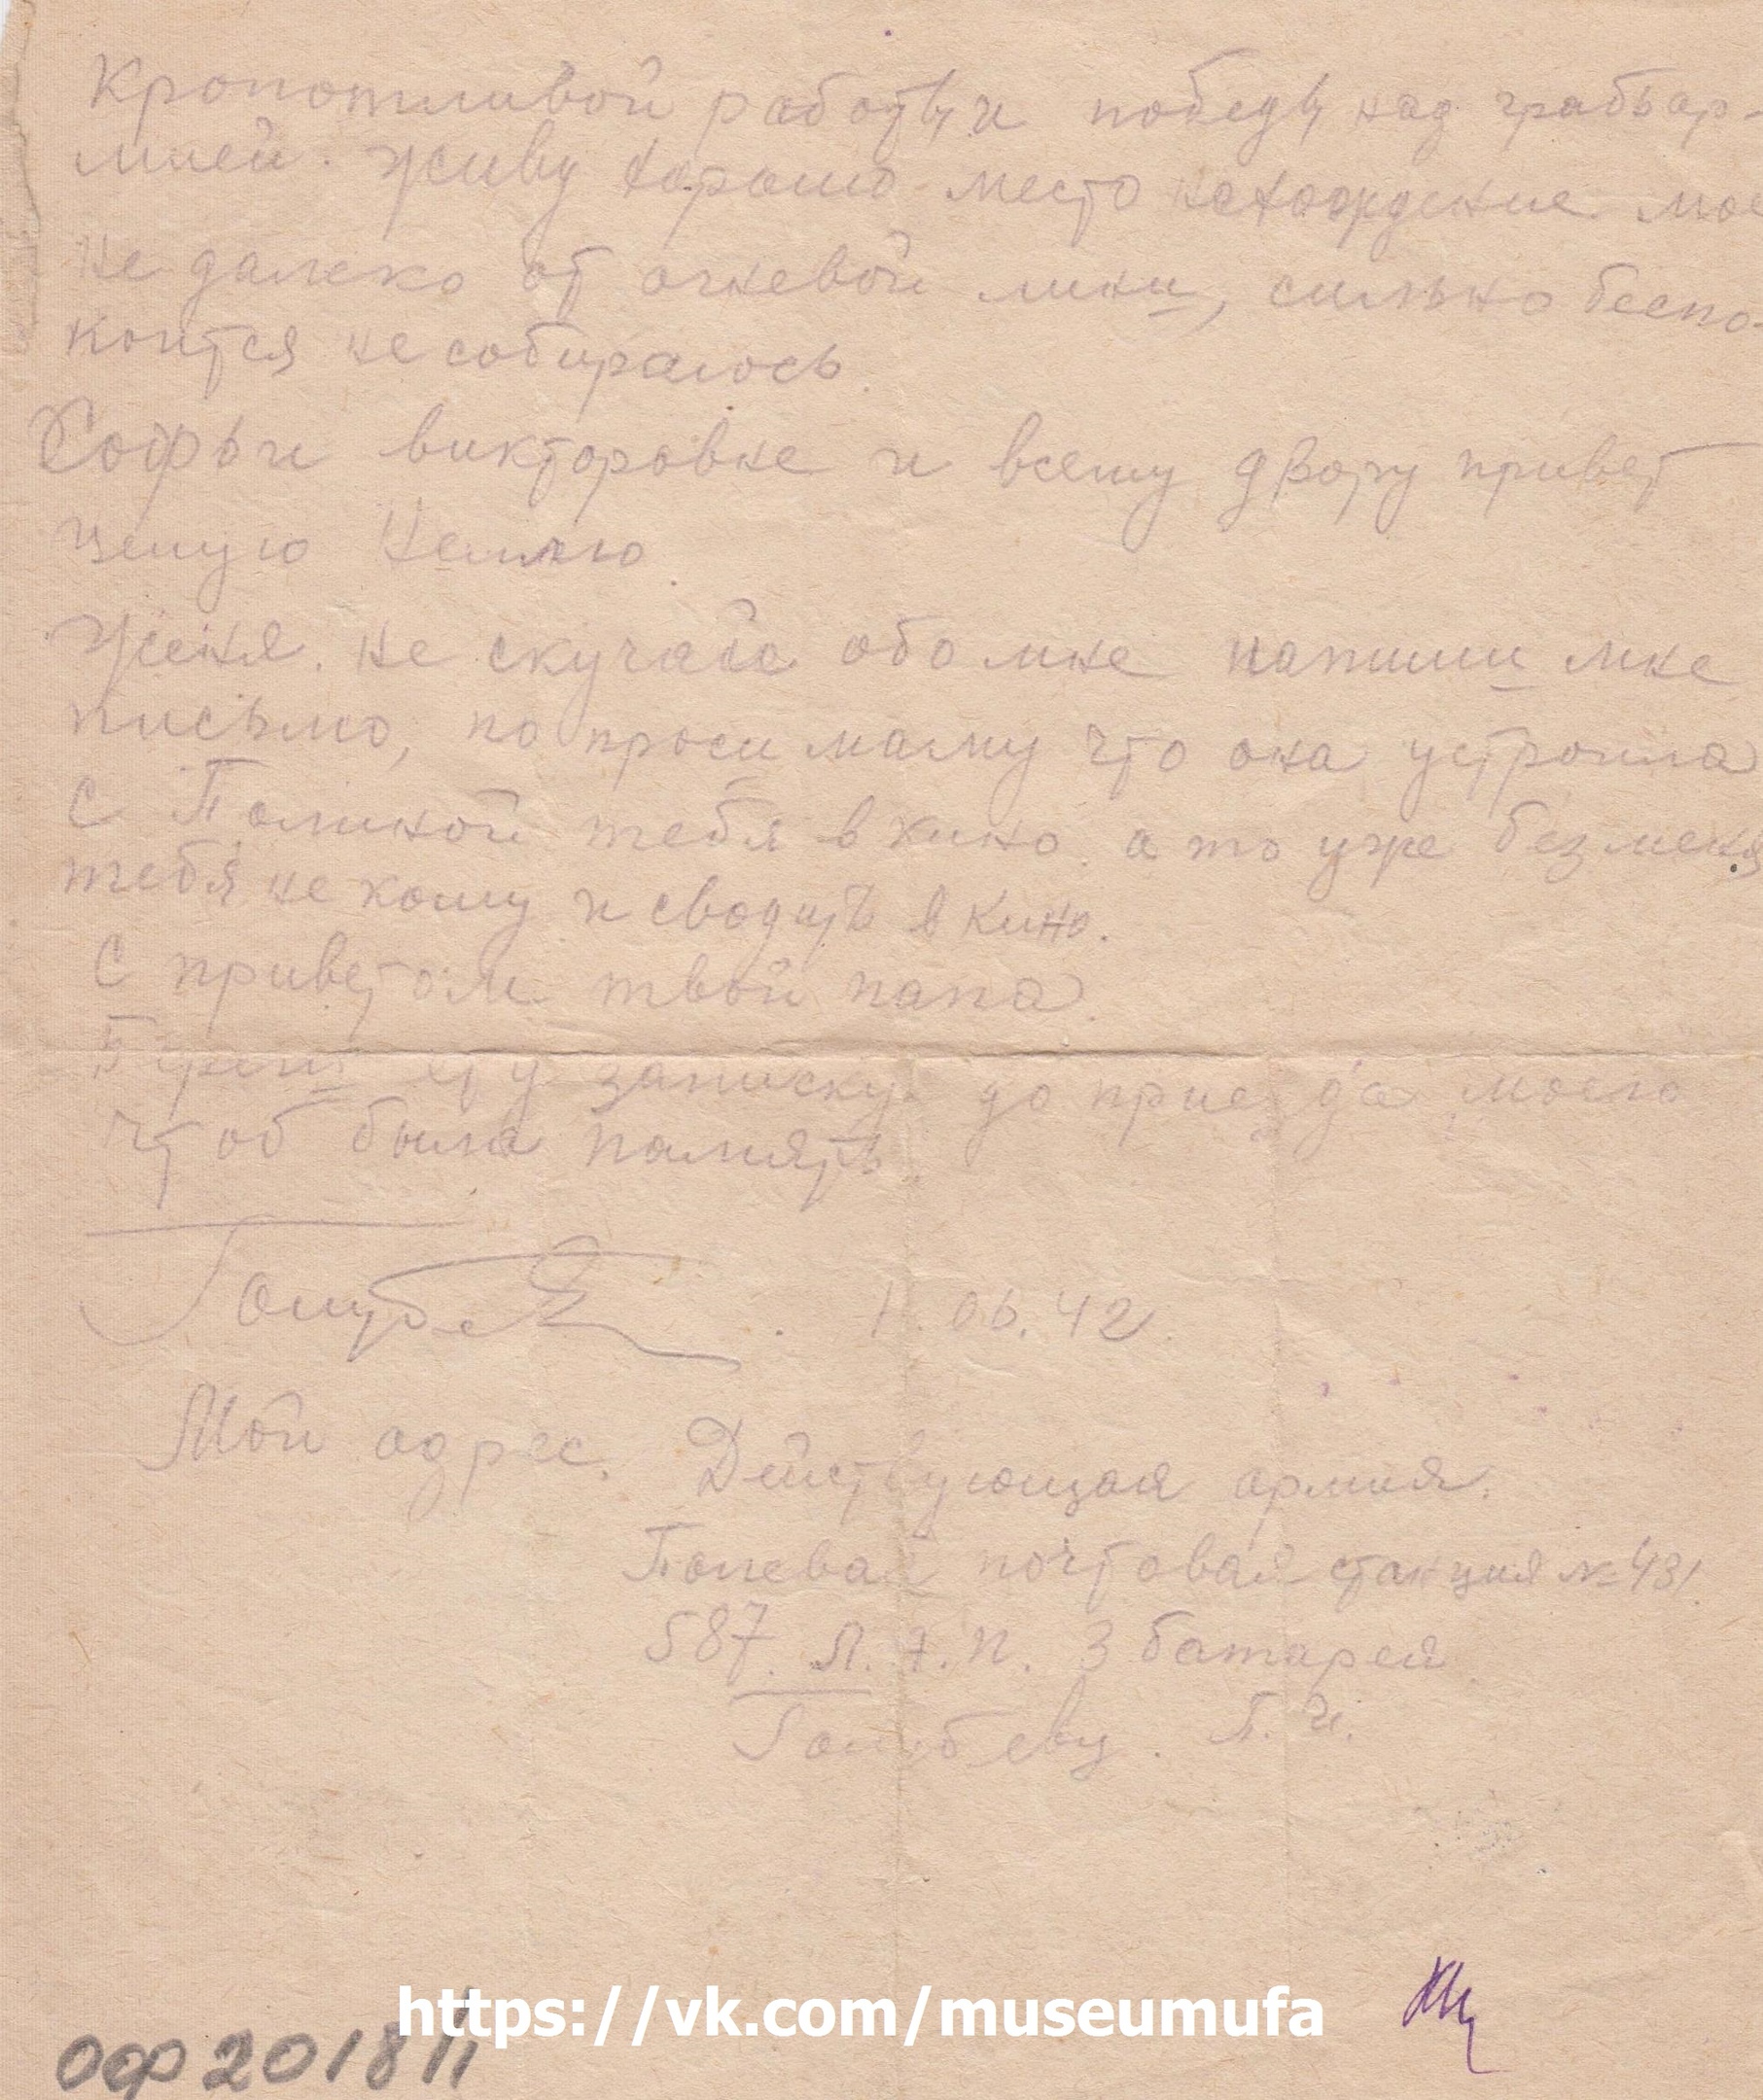 Кропотливой работы и победы над грабьар-
мией. Живу хорошо место нахождение мое
не далеко от огневой лини, сильно беспо-
коится не собираюсь.
Софьи викторовне и всему двору привет
целую Неллю.
Женя. не скучай обо мне напиши мне
письмо, по проси маму что она устроила
с Полиной тебя в кино. а то уже без меня
тебя не кому и сводить в кино.
С приветом твой папа.
Береги эту записку до приезда моего
чтоб была память.
Голубев . 1.06.42.
Мой адрес. Действующая армия.
Полевая почтовая станция № 431
587. Л.А.П. 3 батарея
Голубеву. П. И.
https://vk.com/museumufa
оф 20181/1